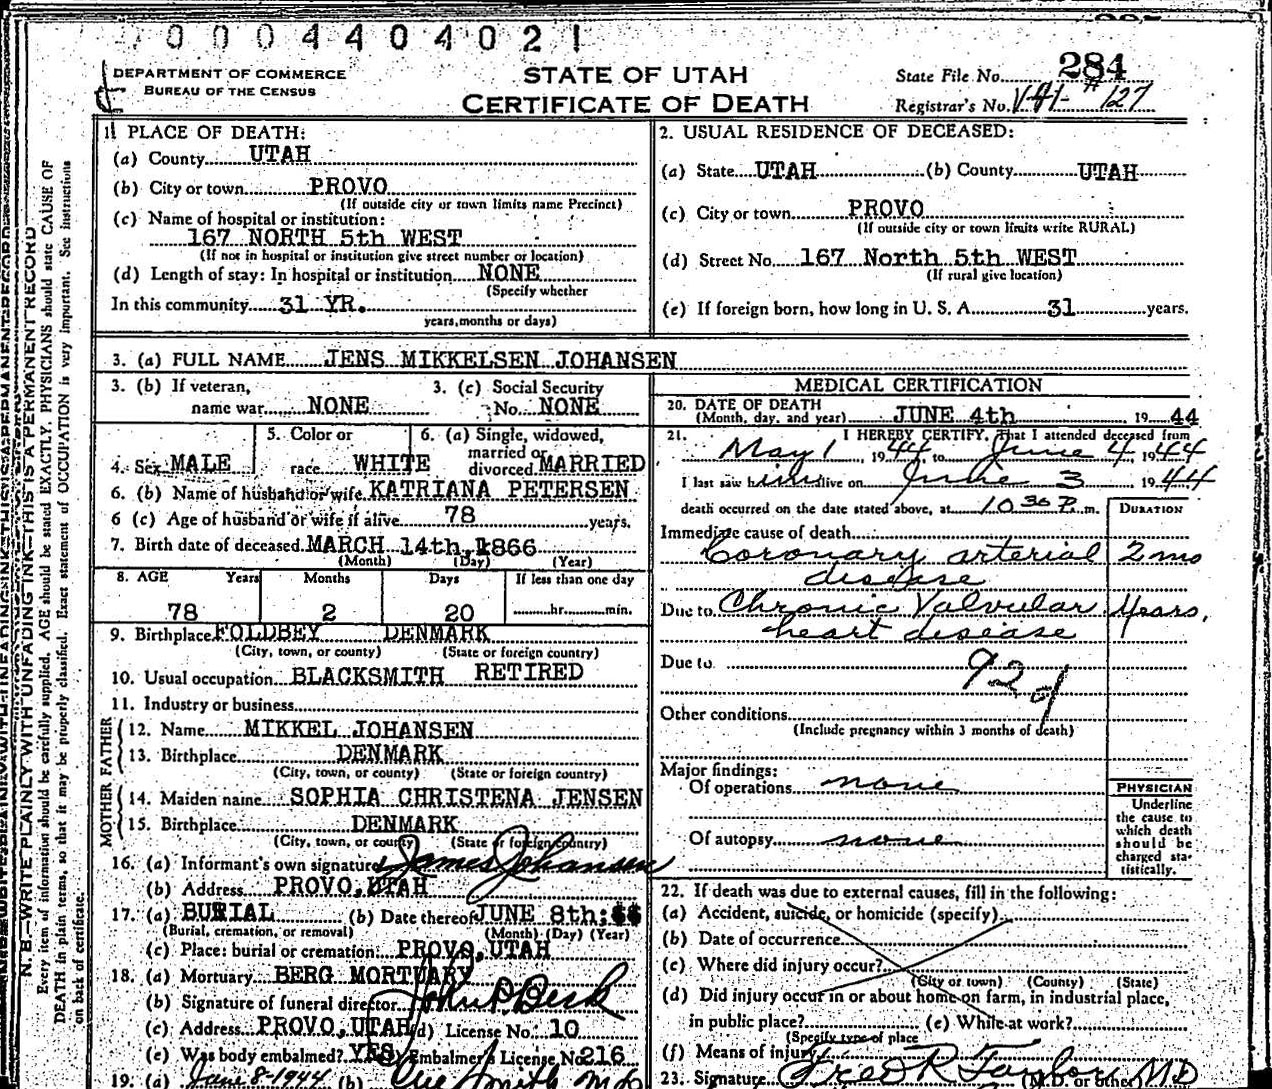 0004404021
DEPARTMENT OF COMMERCE
BUREAU OF THE CENSUS
STATE OF UTAH
CERTIFICATE OF DEATH
State File No. 284
Registrar's No. V-41-#127
N. B.—WRITE PLAINLY WITH UNFADING INK—THIS IS A PERMANENT RECORD
Every item of information should be carefully supplied. AGE should be stated EXACTLY. PHYSICIANS should state CAUSE OF
DEATH in plain terms, so that it may be properly classified. Exact statement of OCCUPATION is very important. See instructions
on back of certificate.
1. PLACE OF DEATH:
(a) County UTAH
(b) City or town PROVO
(If outside city or town limits name Precinct)
(c) Name of hospital or institution:
167 NORTH 5th WEST
(If not in hospital or institution give street number or location)
(d) Length of stay: In hospital or institution NONE
(Specify whether
In this community 31 YR.
years, months or days)
2. USUAL RESIDENCE OF DECEASED:
(a) State UTAH (b) County UTAH
(c) City or town PROVO
(If outside city or town limits write RURAL)
(d) Street No. 167 North 5th WEST
(If rural give location)
(e) If foreign born, how long in U. S. A. 31 years.
3. (a) FULL NAME JENS MIKKELSEN JOHANSEN
3. (b) If veteran,
name war NONE
3. (c) Social Security
No. NONE
4. Sex MALE
5. Color or
race WHITE
6. (a) Single, widowed,
married or
divorced MARRIED
6. (b) Name of husband or wife KATRIANA PETERSEN
6 (c) Age of husband or wife if alive 78 years.
7. Birth date of deceased MARCH 14th, 1866
(Month) (Day) (Year)
8. AGE Years Months Days If less than one day
78 2 20 hr. min.
9. Birthplace FOLDBEY DENMARK
(City, town, or county) (State or foreign country)
10. Usual occupation BLACKSMITH RETIRED
11. Industry or business
FATHER
12. Name MIKKEL JOHANSEN
13. Birthplace DENMARK
(City, town, or county) (State or foreign country)
MOTHER
14. Maiden name SOPHIA CHRISTENA JENSEN
15. Birthplace DENMARK
(City, town, or county) (State or foreign country)
16. (a) Informant's own signature James Johansen
(b) Address PROVO, UTAH
17. (a) BURIAL (b) Date thereof JUNE 8th;
(Burial, cremation, or removal) (Month) (Day) (Year)
(c) Place: burial or cremation: PROVO, UTAH
18. (a) Mortuary BERG MORTUARY
(b) Signature of funeral director
(c) Address PROVO, UTAH (d) License No. 10
(e) Was body embalmed? YES Embalmer's License No. 216
19. (a) June 8-1944 (b) Smith MD
MEDICAL CERTIFICATION
20. DATE OF DEATH
(Month, day, and year) JUNE 4th 19 44
21. I HEREBY CERTIFY, That I attended deceased from
May 1, 1944, to June 4, 1944
I last saw him alive on June 3 1944
death occurred on the date stated above, at 10 30 P. m.
DURATION
Immediate cause of death
Coronary arterial 2 mo
disease
Due to Chronic Valvular Years,
heart disease
Due to
92 d
Other conditions
(Include pregnancy within 3 months of death)
Major findings:
Of operations none
Of autopsy none
PHYSICIAN
Underline
the cause to
which death
should be
charged sta-
tistically.
22. If death was due to external causes, fill in the following:
(a) Accident, suicide, or homicide (specify)
(b) Date of occurrence
(c) Where did injury occur?
(City or town) (County) (State)
(d) Did injury occur in or about home on farm, in industrial place,
in public place? (e) While at work?
(Specify type of place
(f) Means of injury
23. Signature Fred R Taylor MD
(M.D. or other)